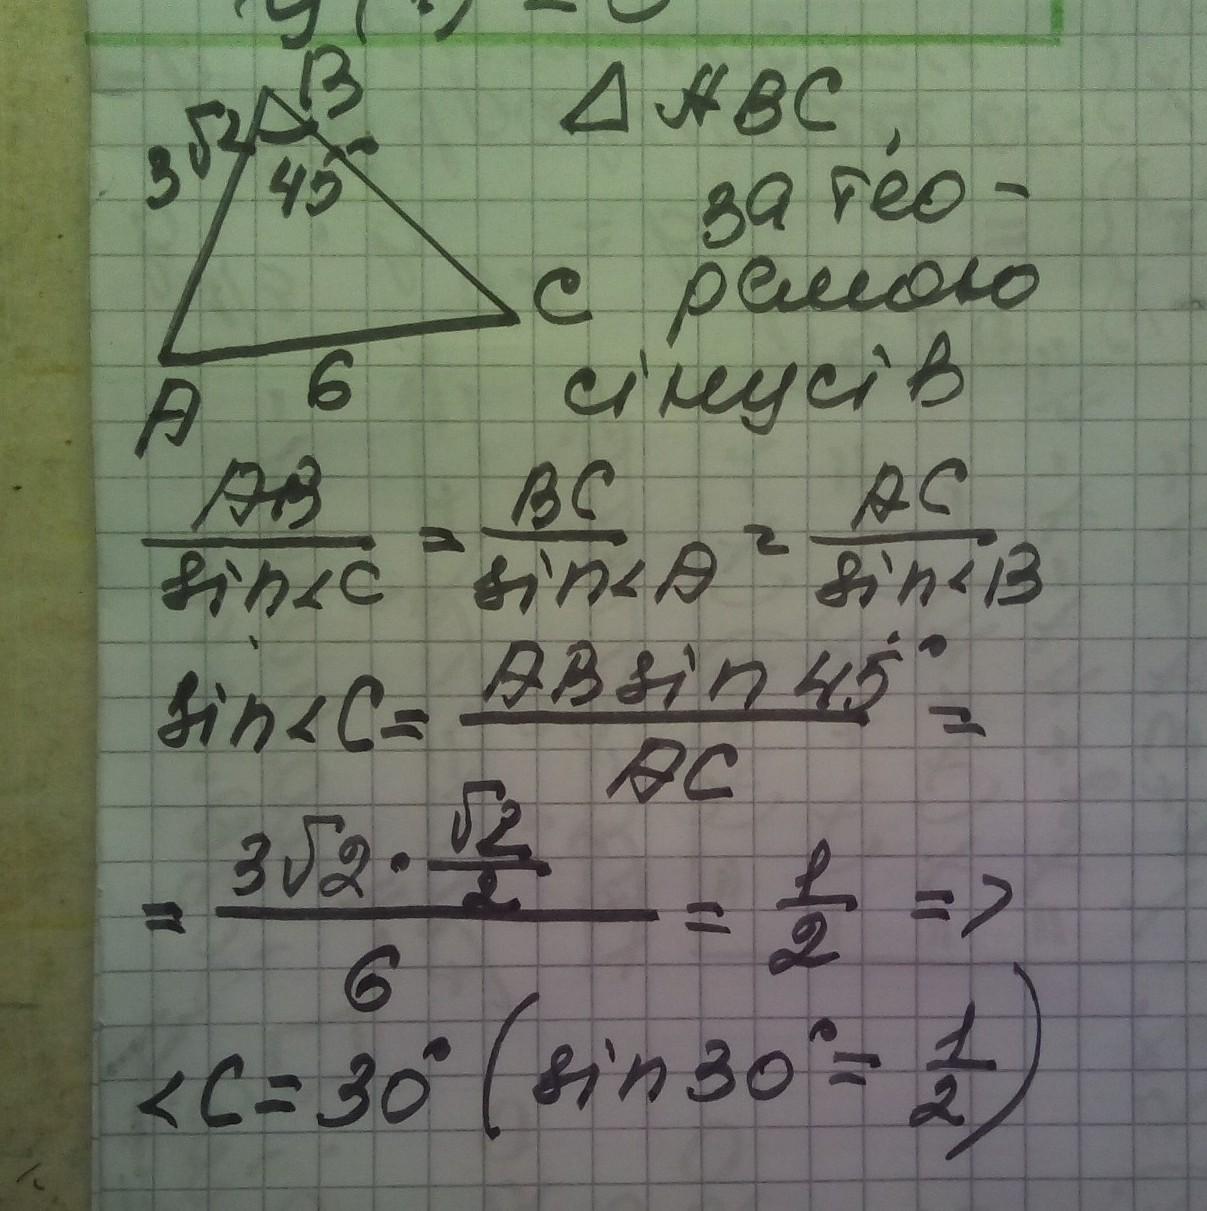 B
3√2
45°
C
A
6
△ ABC,
за тео-
ремою
сінусів
AB/sin<C = BC/sin<A = AC/sin<B
sin<C = AB sin 45°/AC =
= 3√2 · √2/2 / 6 = 1/2 =>
<C = 30° (sin 30° = 1/2)